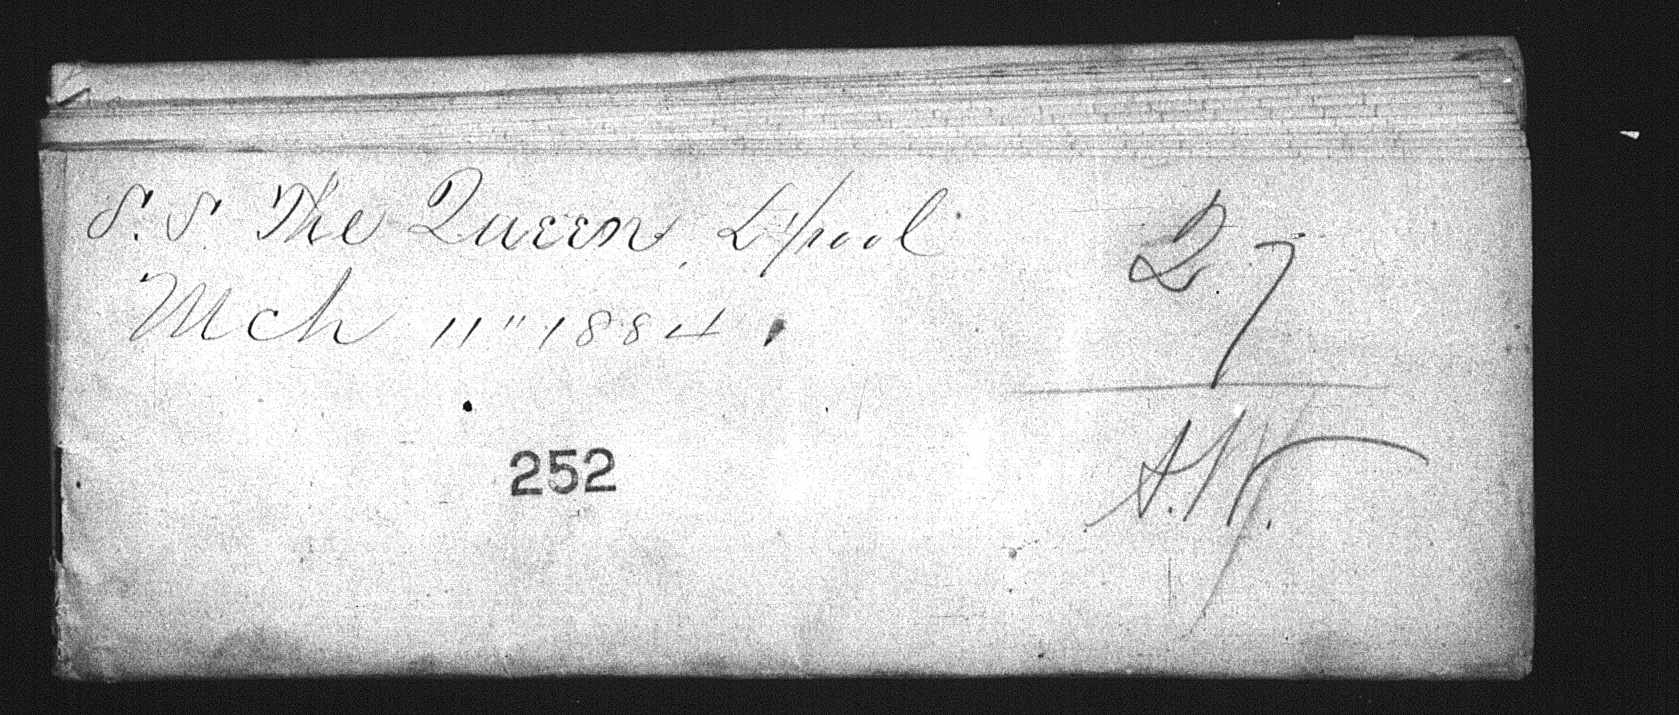 S.S. The Queen, L'pool
Mch 11" 1884.
252